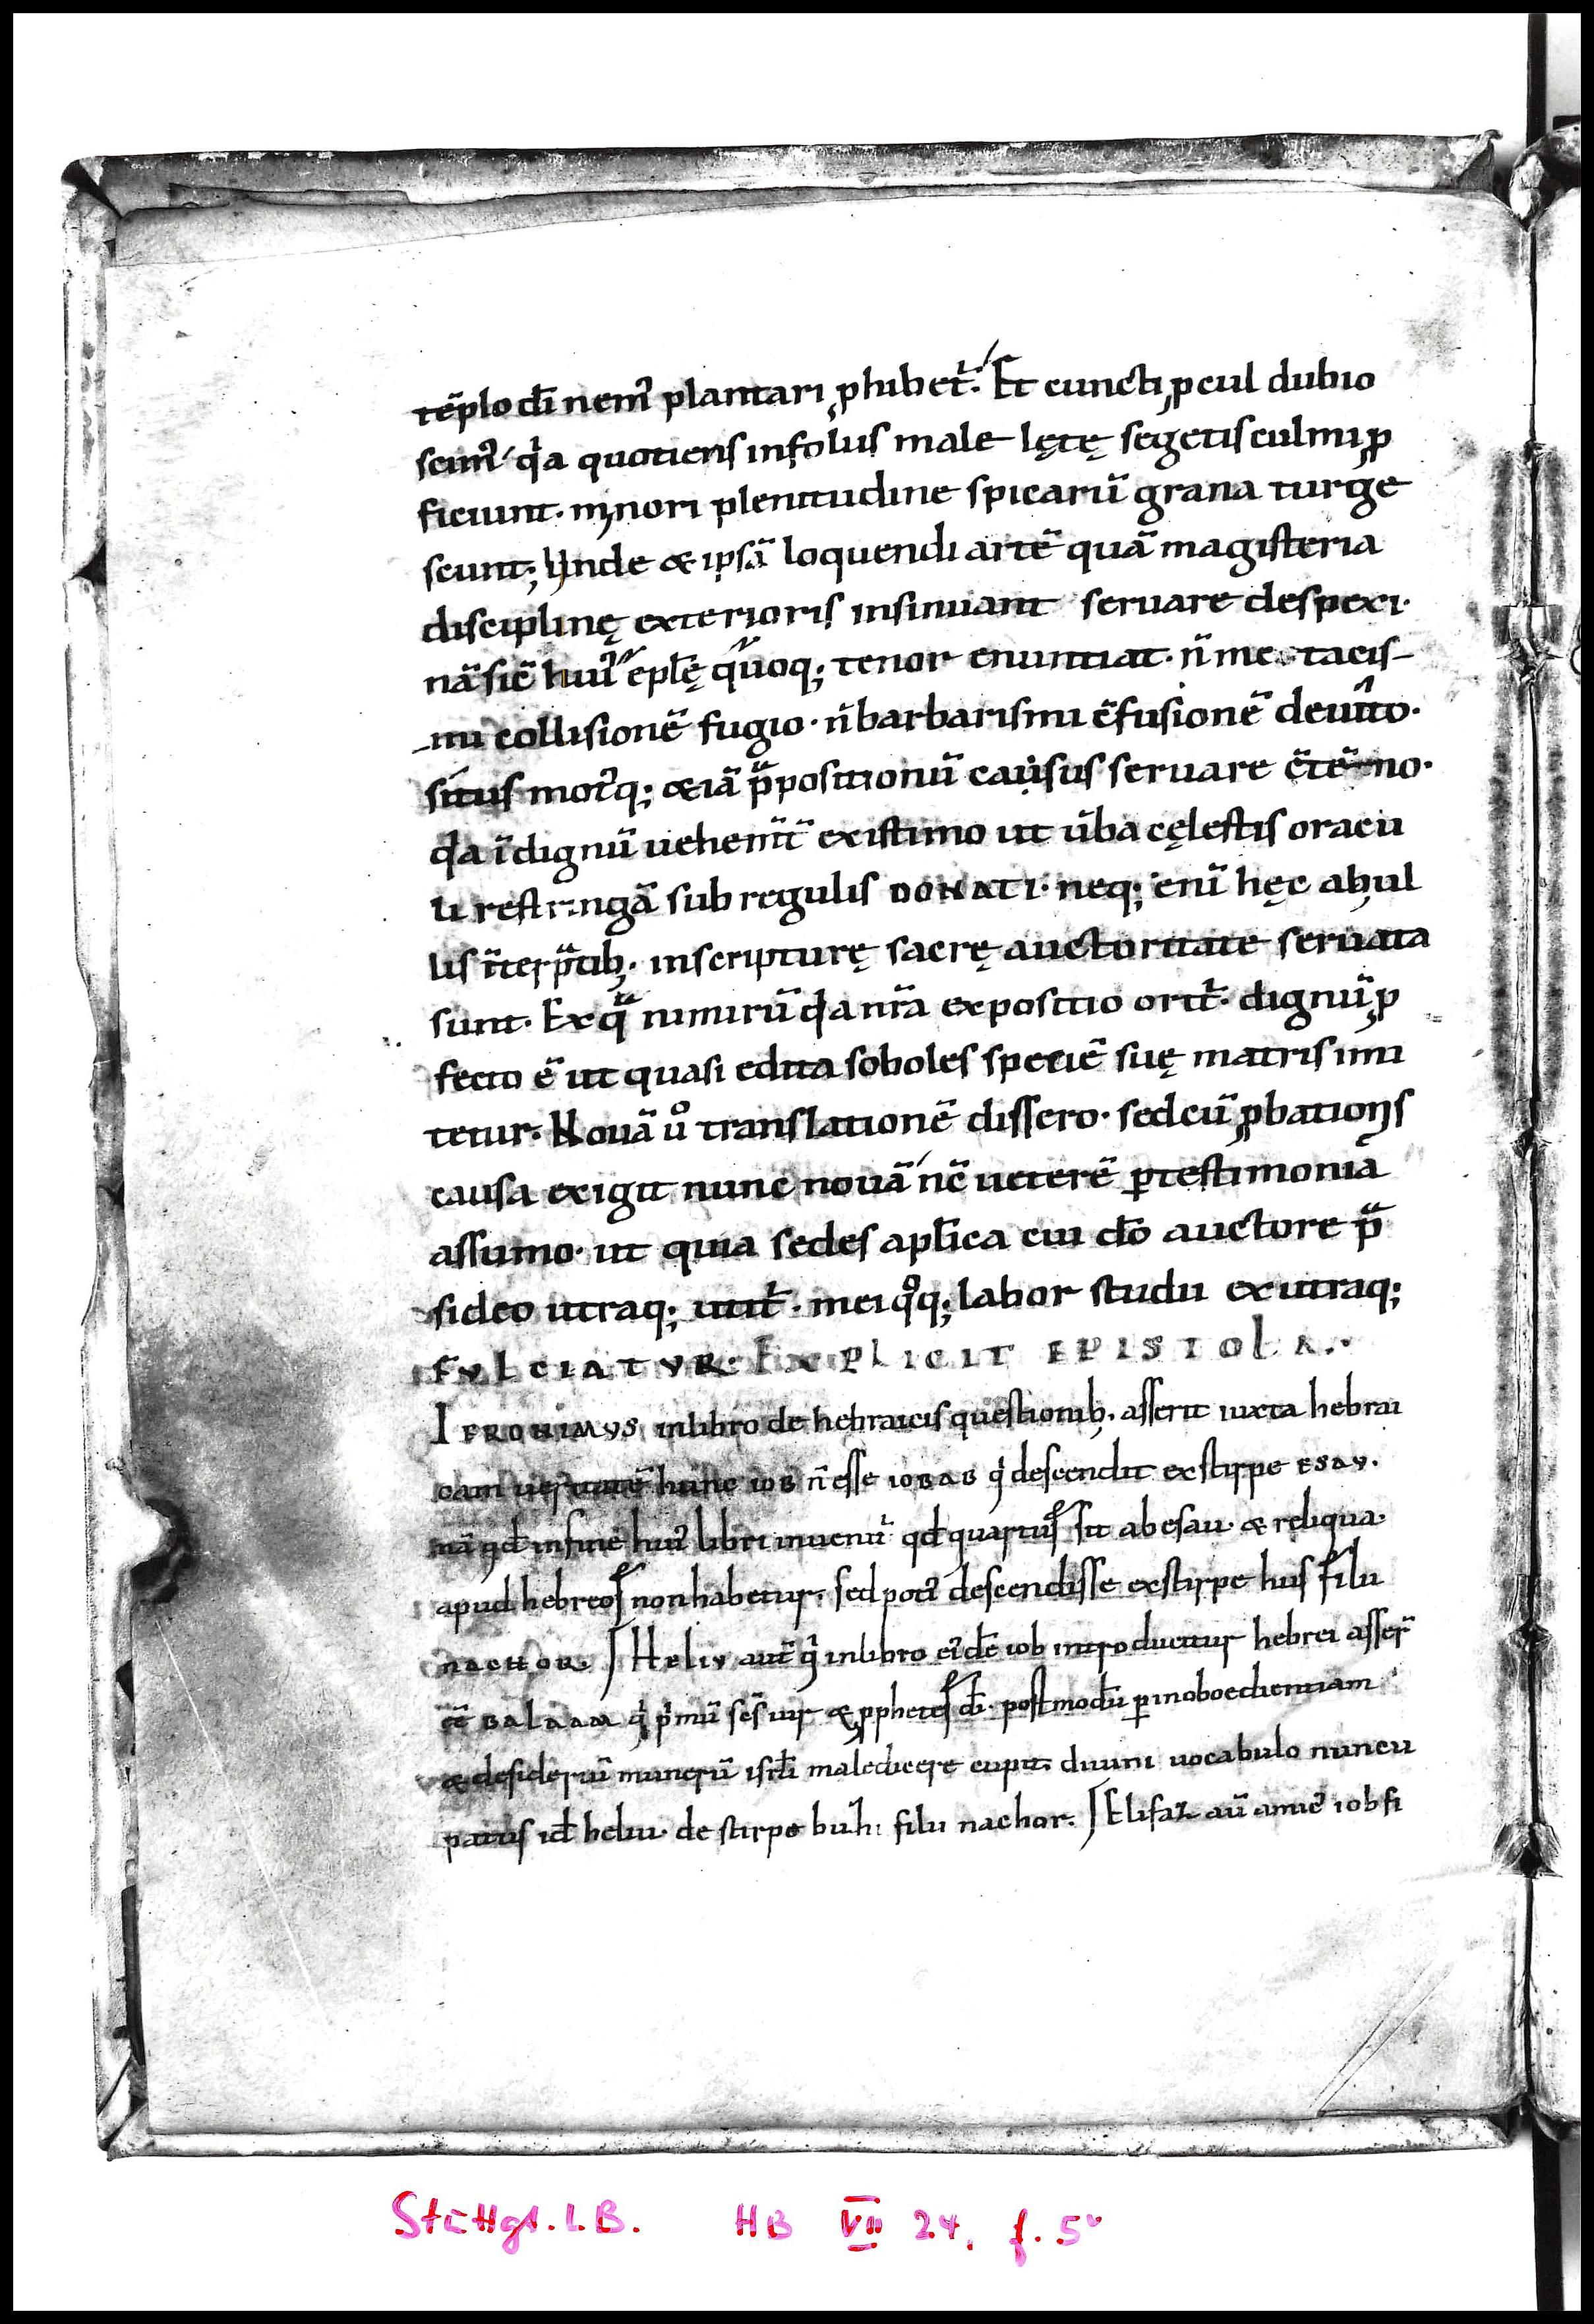 tēplo dī nemꝰ plantari ꝓhibet᷑. Et cuncti ꝓcul dubio
scimꝰ qͥa quotiens in foliis male lętę segetis culmi ꝓ
ficiunt. minori plenitudine spicarū grana turge
scunt; Unde & ipsā loquendi artē quā magisteria
disciplinę exterioris insinuant seruare despexi.
nā sic̄ huiꝰ epl̄ę q̄uoq; tenor enuntiat. n̄ metacis-
mi collisionē fugio. n̄ barbarismi c̄fusionē deuito.
situs motꝰq; & iā p̄positionū causus seruare c̄tēno.
qͥa īdignū uehem̄t̄ existimo ut ūba cęlestis oracu
li restringā sub regulis DONATI. neq; enī hęc ab ul
lis īterp̄tib;. in scripturę sacrę auctoritate seruata
sunt. Ex qᵃ nimirū qͥa nr̄a expositio orit᷑. dignū ꝓ
fecto ē ut quasi edita soboles speciē suę matris imi
tetur. Nouā uͦ translationē dissero. sed cū ꝓbationis
causa exigit nunc nouā nc̄ ueterē ꝑ testimonia
assumo. ut quia sedes apl̄ica cui dō auctore p̄
sideo utraq; utit᷑. mei qͦq; labor studii ex utraq;
FULCIATUR. EXPLICIT EPISTOLA.
IERONIMUS in libro de hebraicis questionib;. asserit iuxta hebrai
cam ueritatē hunc IOB n̄ esse IOBAB qͥ descendit ex stirpe ESAU.
nā qd̄ in fine huiꝰ libri inuenit᷑ qd̄ quartus sit ab esau. & reliqua.
apud hebreos non habetur. sed potiꝰ descendisse ex stirpe hus filii
NACHOR. HELIU aut̄ qͥ in libro eiꝰdē iob introducitur hebrei asser̄
ēē BALAAM qͥ pͥmū sc̄s uir & ꝓphetes dī. postmodū ꝑ inoboedientiam
& desideriū munerū isrl̄i maledicere cupit. diuini uocabulo nuncu
patus id̄ heliu. de stirpe buhi filii nachor. Elifaz aū amicꝰ iob fi
Stuttgt. L.B. HB VII 24. f. 5v